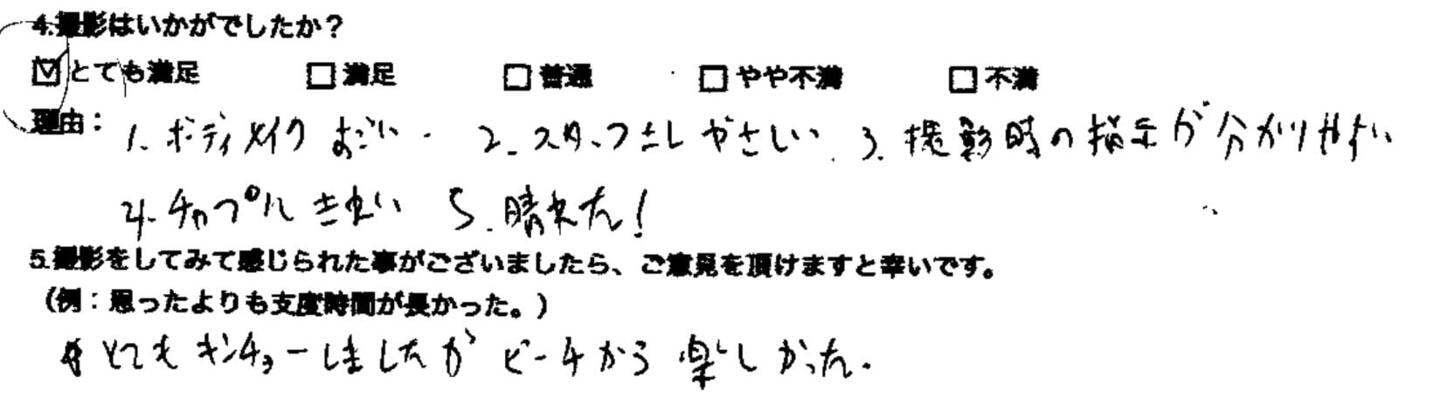 4.撮影はいかがでしたか？
☑とても満足 □満足 □普通 □やや不満 □不満
理由： 1. ボディメイクすごい 2. スタッフさんやさしい 3. 撮影時の指示が分かりやすい
4. チャペルきれい 5. 晴れた！
5.撮影をしてみて感じられた事がございましたら、ご意見を頂けますと幸いです。
（例：思ったよりも支度時間が長かった。）
とてもキンチョーしましたがビーチから楽しかった.